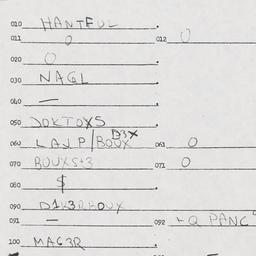 010 HANTFUL
011 0 012 0
020 0
030 NAGL
040 —
050 DOKTOXS
060 LAJP/BOUX D3X 061 0
070 BOUXS+3 071 0
080 $
090 D1K3RBOUX
091 — 092 +Q PANC
100 MAG3R